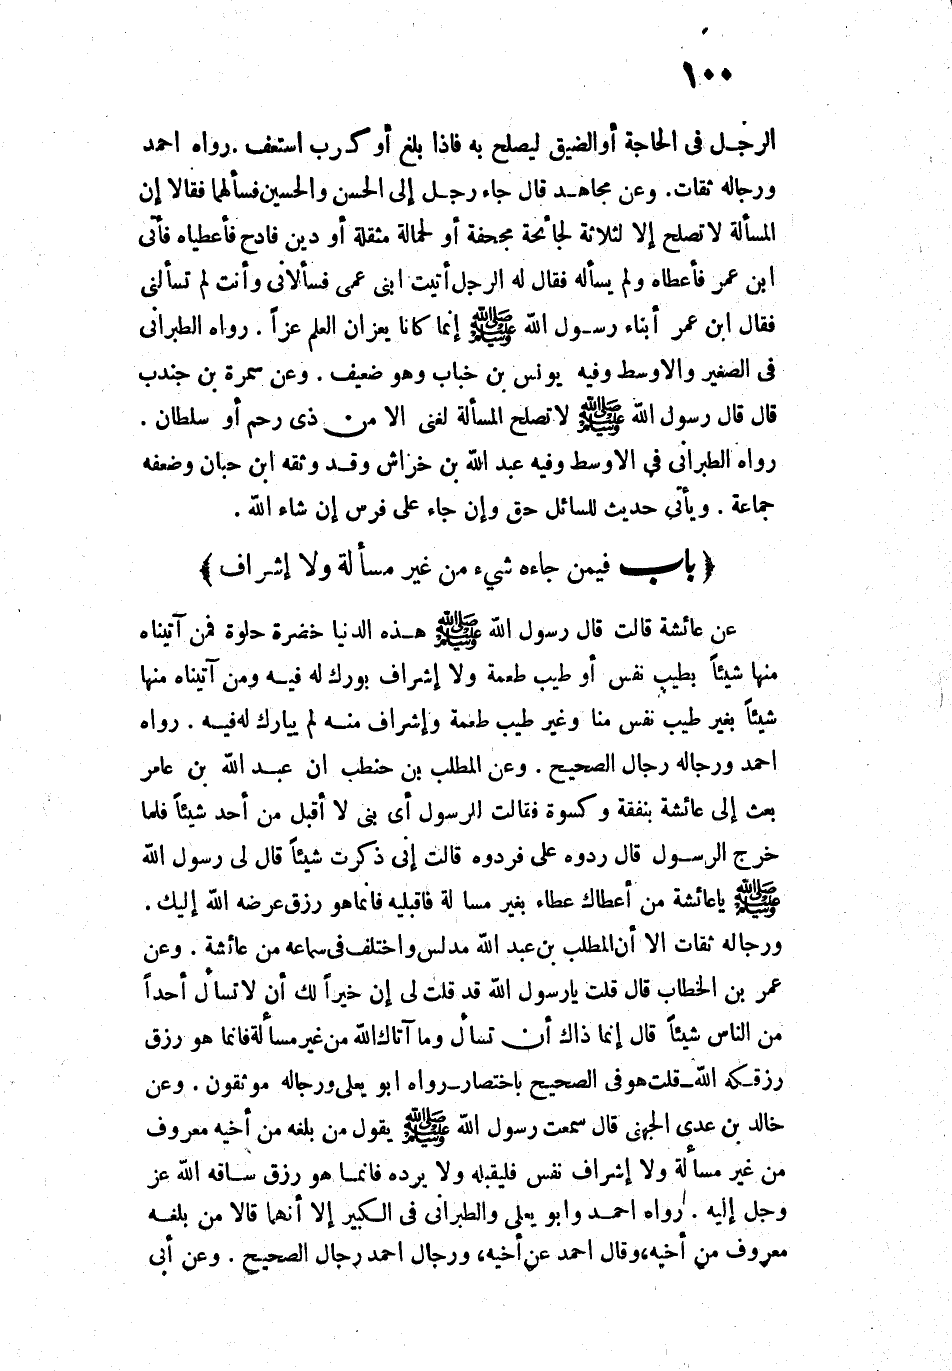 ١٠٠
الرجل فى الحاجة أوالضيق ليصلح به فاذا بلغ أو كرب استعف . رواه احمد
ورجاله ثقات . وعن مجاهد قال جاء رجل إلى الحسن والحسين فسألهما فقالا إن
المسألة لاتصلح إلا لثلاثة لجائحة مجحفة أو لحمالة مثقلة أو دين فادح فأعطياه فأتى
ابن عمر فأعطاه ولم يسأله فقال له الرجل أتيت ابنى عمى فسألانى وأنت لم تسألنى
فقال ابن عمر أبناء رسول الله ﷺ إنما كانا يعزان العلم عزاً . رواه الطبرانى
فى الصغير والاوسط وفيه يونس بن خباب وهو ضعيف . وعن سمرة بن جندب
قال قال رسول الله ﷺ لاتصلح المسألة لغنى الا من ذى رحم أو سلطان .
رواه الطبرانى في الاوسط وفيه عبد الله بن خراش وقد وثقه ابن حبان وضعفه
جماعة . ويأتي حديث للسائل حق وإن جاء على فرس إن شاء الله .
﴿ باب فيمن جاءه شيء من غير مسألة ولا إشراف ﴾
عن عائشة قالت قال رسول الله ﷺ هذه الدنيا خضرة حلوة فمن آتيناه
منها شيئاً بطيب نفس أو طيب طعمة ولا إشراف بورك له فيه ومن آتيناه منها
شيئاً بغير طيب نفس منا وغير طيب طعمة وإشراف منه لم يبارك له فيه . رواه
احمد ورجاله رجال الصحيح . وعن المطلب بن حنطب ان عبد الله بن عامر
بعث إلى عائشة بنفقة وكسوة فقالت للرسول أى بنى لا أقبل من أحد شيئاً فلما
خرج الرسول قال ردوه على فردوه قالت إنى ذكرت شيئاً قال لى رسول الله
ﷺ ياعائشة من أعطاك عطاء بغير مسألة فاقبليه فانما هو رزق عرضه الله إليك .
ورجاله ثقات الا أن المطلب بن عبد الله مدلس واختلف فى سماعه من عائشة . وعن
عمر بن الخطاب قال قلت يارسول الله قد قلت لى إن خيراً لك أن لاتسأل أحداً
من الناس شيئاً قال إنما ذاك أن تسأل وما آتاك الله من غير مسألة فانما هو رزق
رزقكه الله ـ قلت هو فى الصحيح باختصار ـ رواه ابو يعلى ورجاله موثقون . وعن
خالد بن عدى الجهنى قال سمعت رسول الله ﷺ يقول من بلغه من أخيه معروف
من غير مسألة ولا إشراف نفس فليقبله ولا يرده فانما هو رزق ساقه الله عز
وجل إليه . رواه احمد وابو يعلى والطبرانى فى الكبير إلا أنهما قالا من بلغه
معروف من أخيه، وقال احمد عن أخيه، ورجال احمد رجال الصحيح . وعن أبى